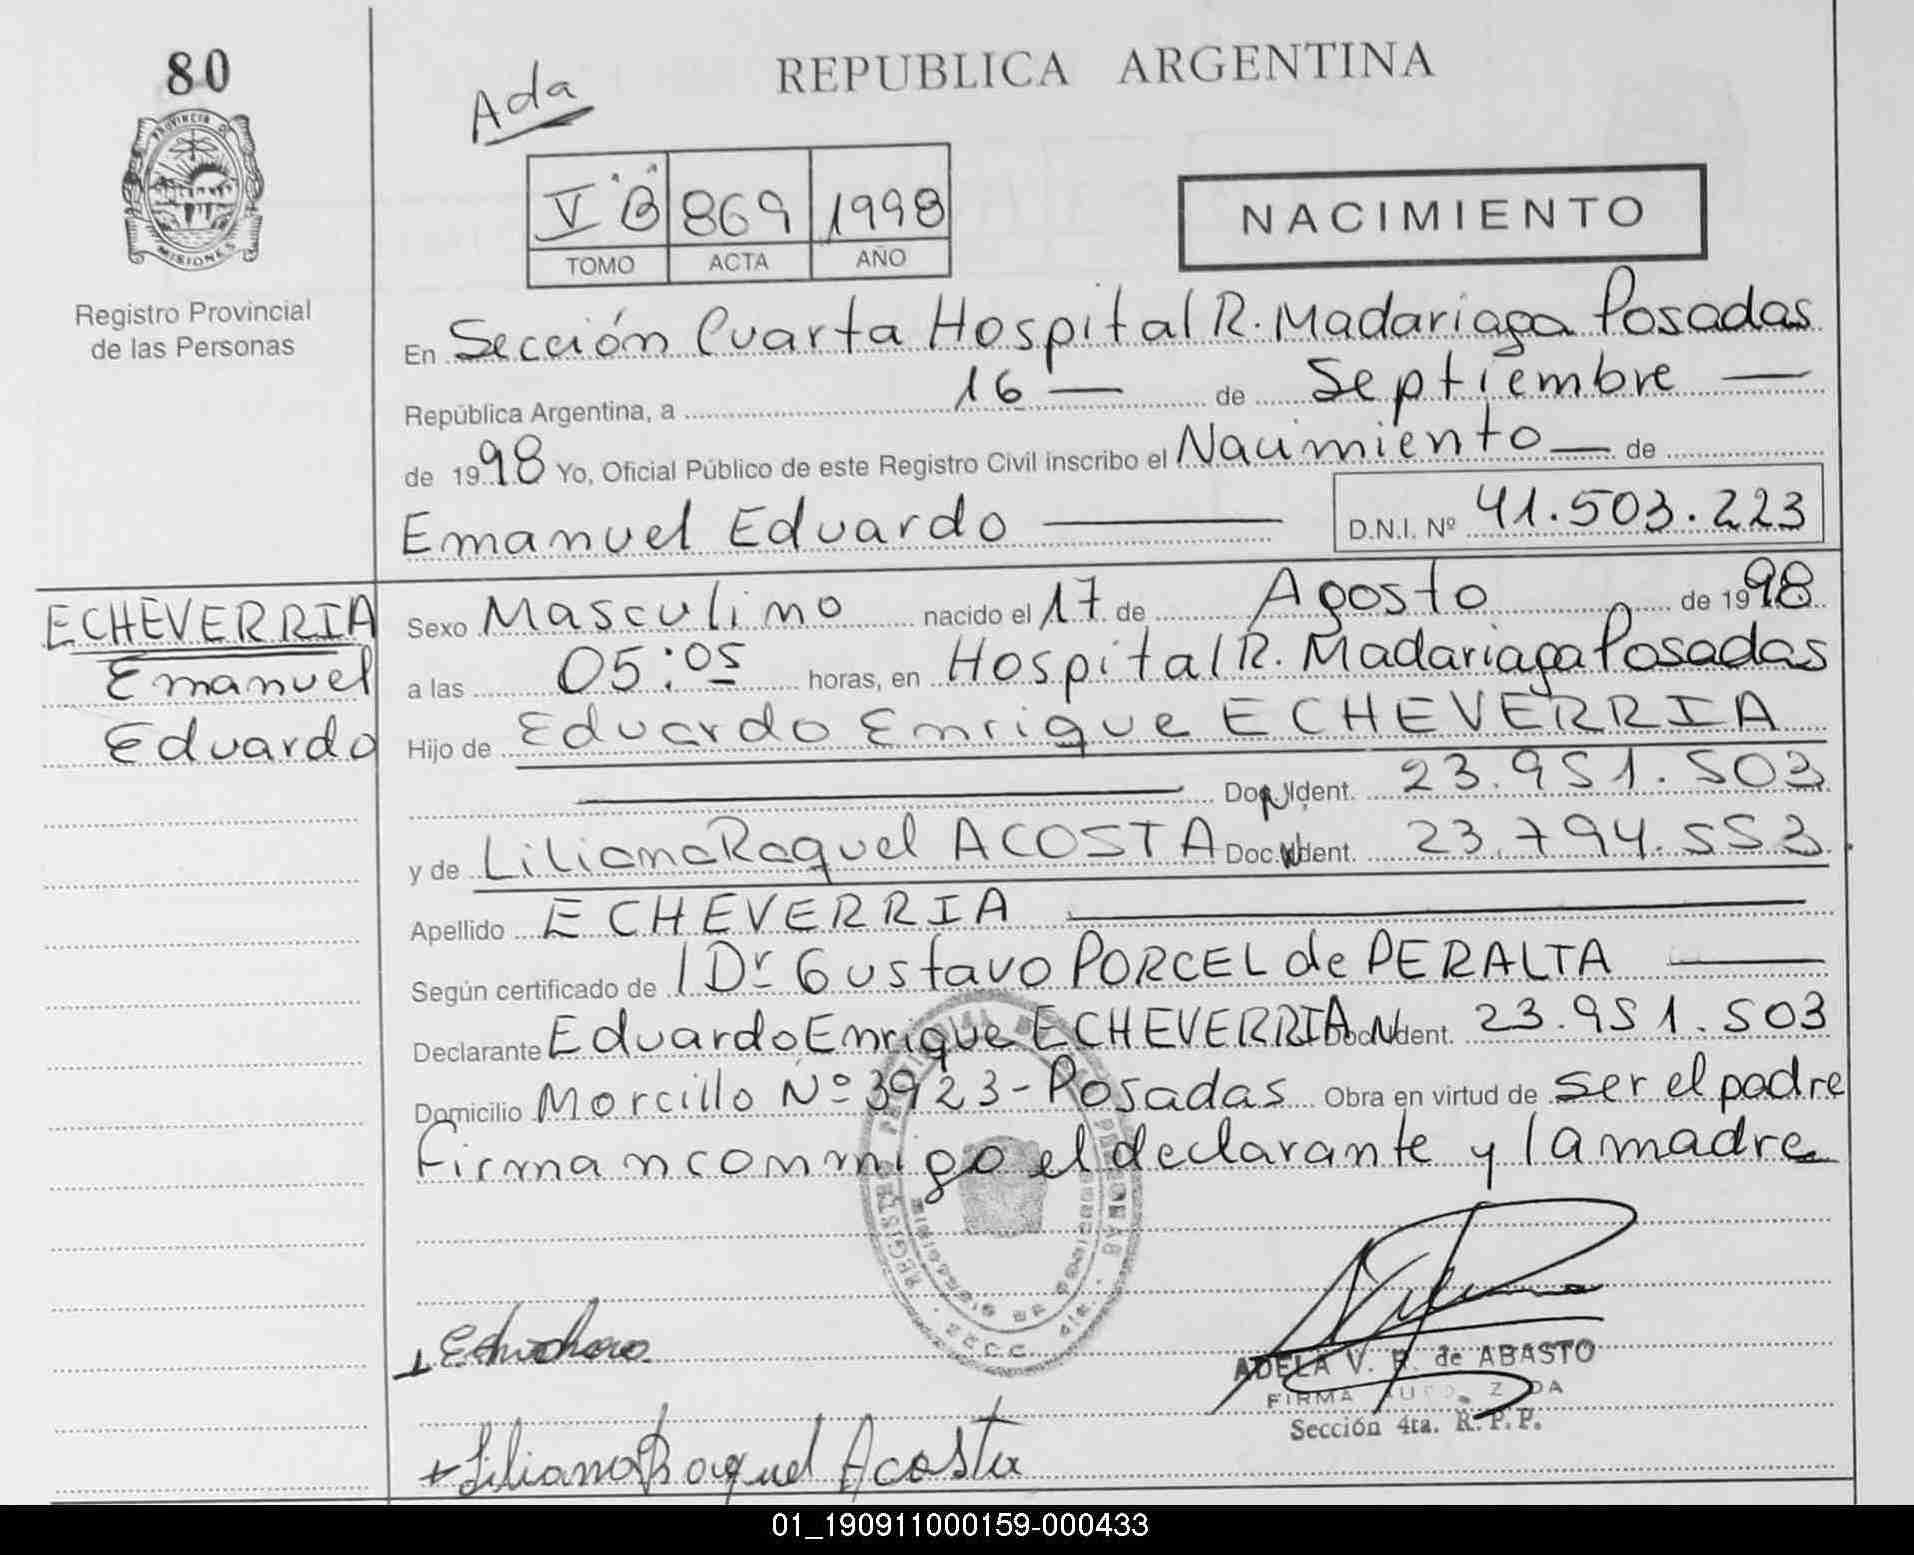 80
Ada
REPUBLICA ARGENTINA
PROVINCIA DE
MISIONES
V "B" 869 1998
TOMO ACTA AÑO
NACIMIENTO
Registro Provincial
de las Personas
En Sección Cuarta Hospital R. Madariaga Posadas
República Argentina, a 16 — de Septiembre —
de 1998 Yo, Oficial Público de este Registro Civil inscribo el Nacimiento — de
Emanuel Eduardo — D.N.I. Nº 41.503.223
ECHEVERRIA
Emanuel
Eduardo
Sexo Masculino nacido el 17 de Agosto de 1998
a las 05:05 horas, en Hospital R. Madariaga Posadas
Hijo de Eduardo Enrique ECHEVERRIA
— Doc. N Ident. 23.951.503
y de Liliana Raquel ACOSTA Doc. N Ident. 23.794.553
Apellido ECHEVERRIA —
Según certificado de / Dr Gustavo PORCEL de PERALTA —
Declarante Eduardo Enrique ECHEVERRIA Doc. N Ident. 23.951.503
Domicilio Morcillo Nº 3923 - Posadas Obra en virtud de ser el padre
Firman conmigo el declarante y la madre
ADELA V. R. de ABASTO
FIRMA AUTORIZADA
Sección 4ta. R. P. P.
Liliana Raquel Acosta
01_190911000159-000433